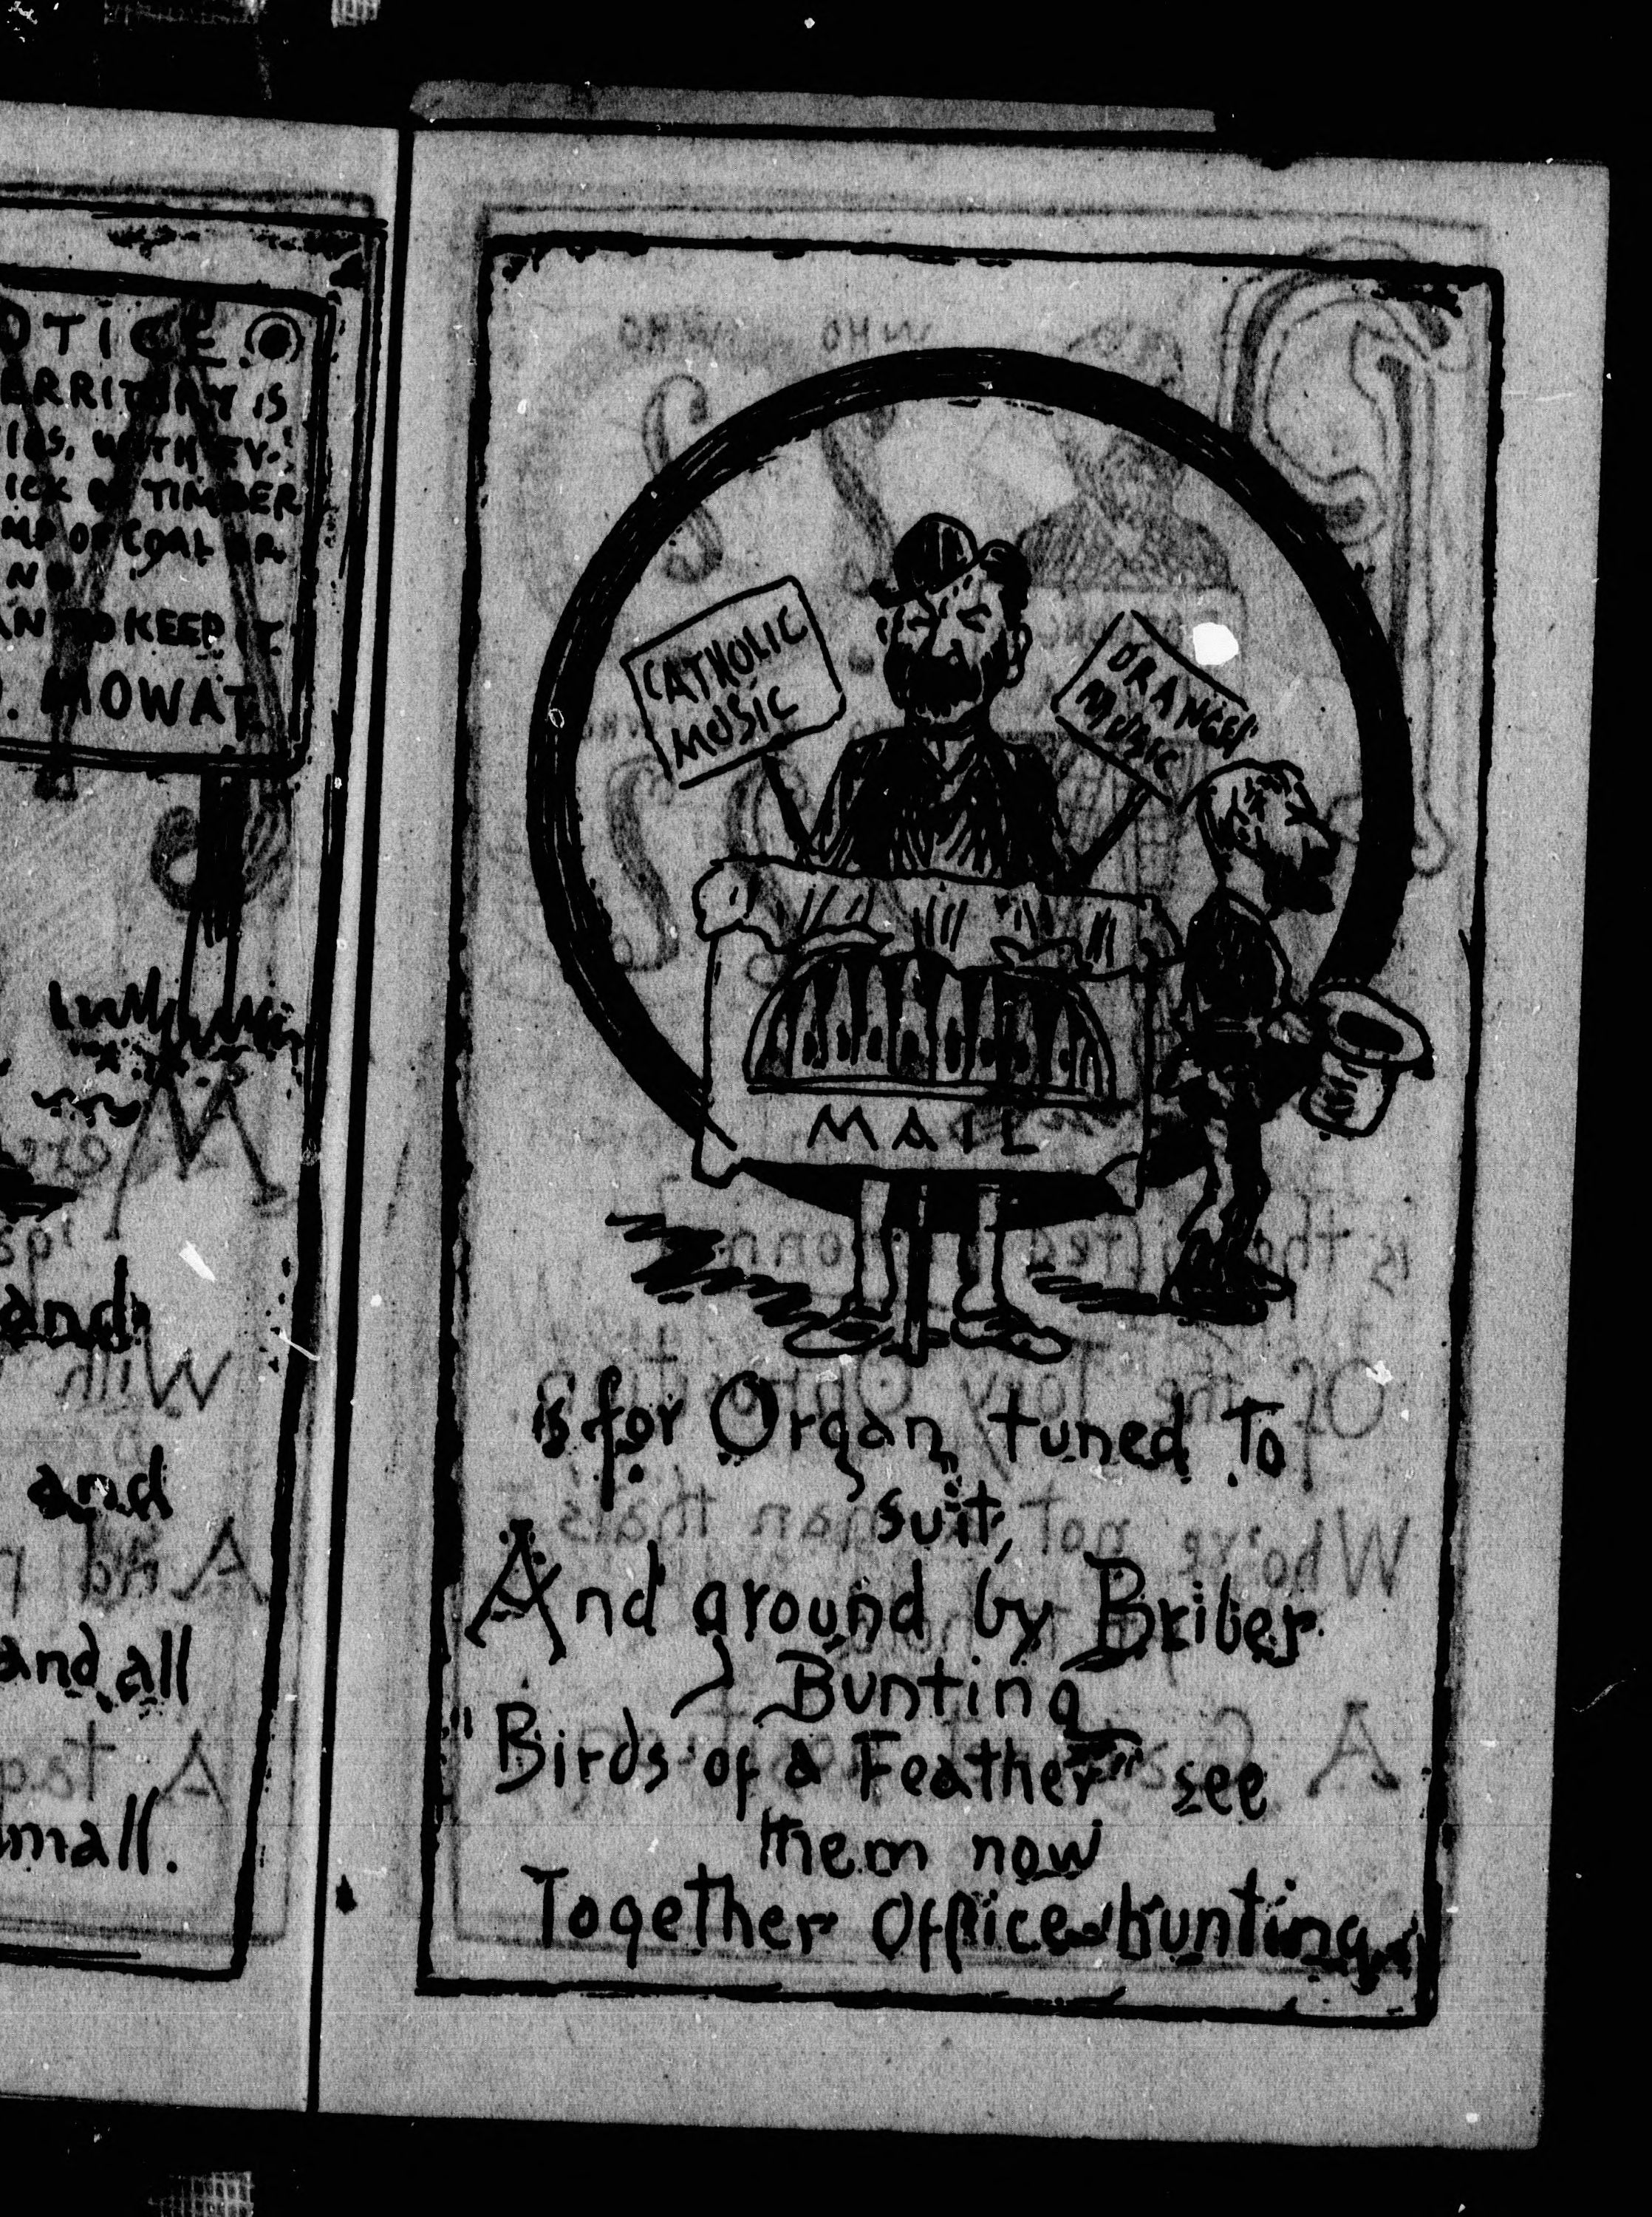 OTICE.
ERRITORY IS
WITH EV-
ICK OF TIMBER
MP OF COAL OR
AN TO KEEP IT
O. MOWAT
and
and
and all
small.
CATHOLIC
MUSIC
ORANGE
MUSIC
MAIL
is for Organ, tuned to
suit,
And ground by Briber
Bunting
"Birds of a Feather" see
them now
Together Office-hunting.